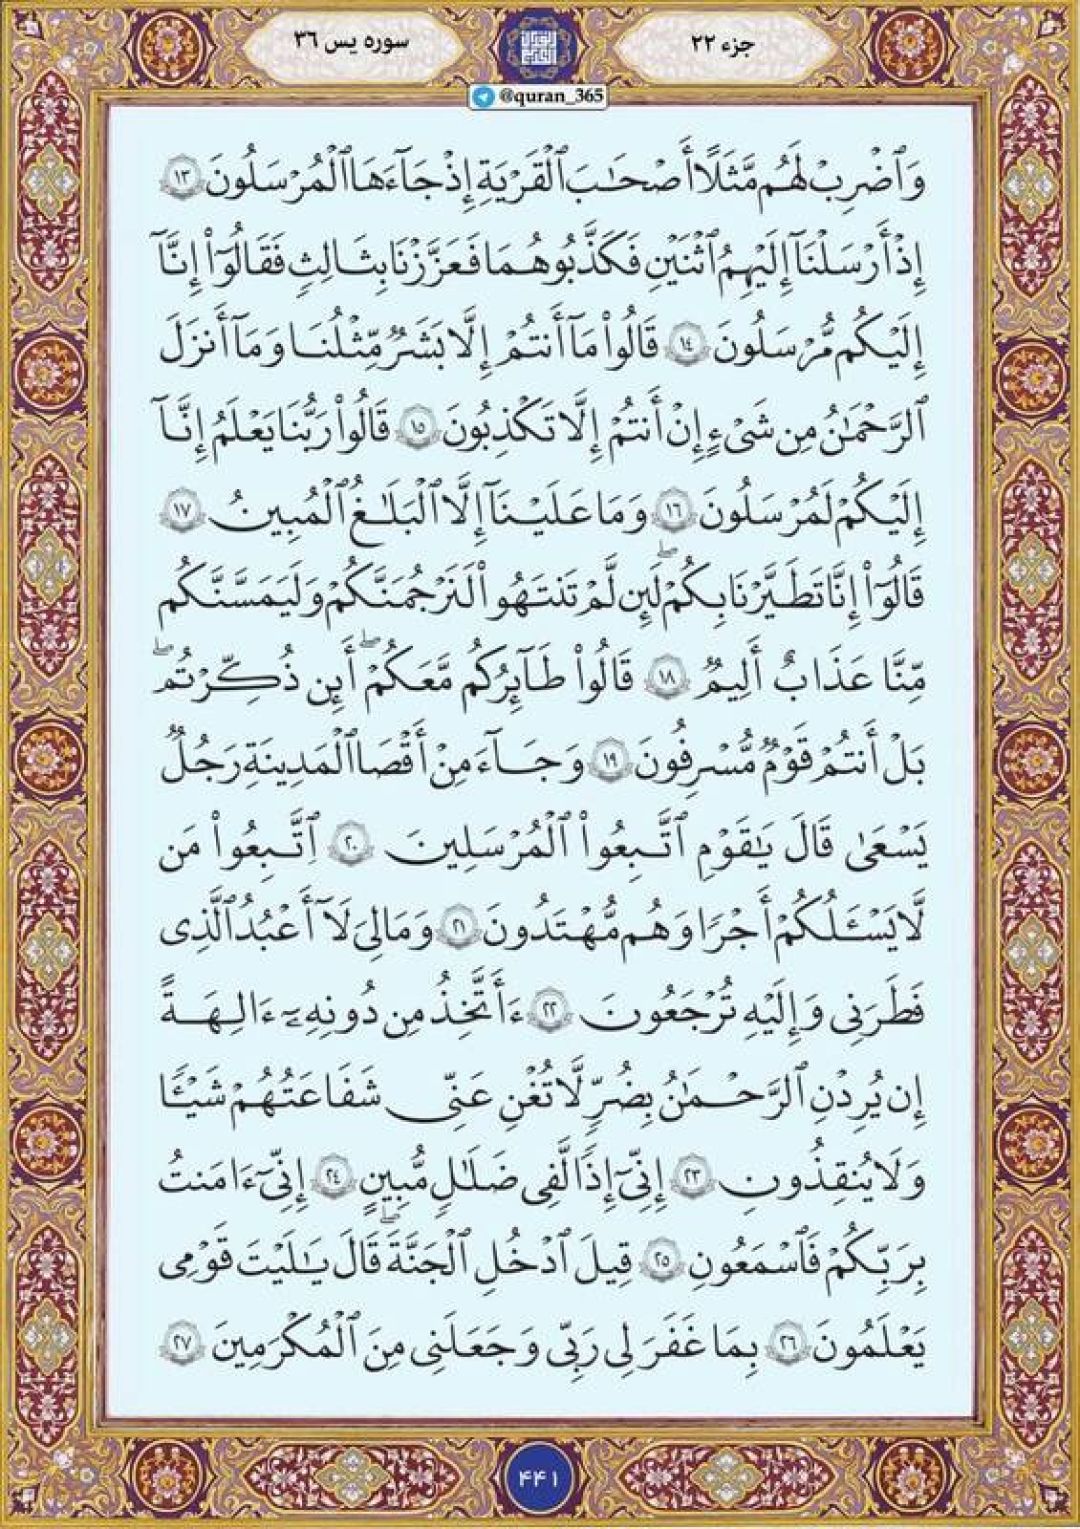 جزء ٢٢
سوره یس ٣٦
@quran_365
وَٱضْرِبْ لَهُم مَّثَلًا أَصْحَٰبَ ٱلْقَرْيَةِ إِذْ جَآءَهَا ٱلْمُرْسَلُونَ ١٣
إِذْ أَرْسَلْنَآ إِلَيْهِمُ ٱثْنَيْنِ فَكَذَّبُوهُمَا فَعَزَّزْنَا بِثَالِثٍ فَقَالُوٓا۟ إِنَّآ
إِلَيْكُم مُّرْسَلُونَ ١٤ قَالُوا۟ مَآ أَنتُمْ إِلَّا بَشَرٌ مِّثْلُنَا وَمَآ أَنزَلَ
ٱلرَّحْمَٰنُ مِن شَىْءٍ إِنْ أَنتُمْ إِلَّا تَكْذِبُونَ ١٥ قَالُوا۟ رَبُّنَا يَعْلَمُ إِنَّآ
إِلَيْكُمْ لَمُرْسَلُونَ ١٦ وَمَا عَلَيْنَآ إِلَّا ٱلْبَلَٰغُ ٱلْمُبِينُ ١٧
قَالُوٓا۟ إِنَّا تَطَيَّرْنَا بِكُمْ ۖ لَئِن لَّمْ تَنتَهُوا۟ لَنَرْجُمَنَّكُمْ وَلَيَمَسَّنَّكُم
مِّنَّا عَذَابٌ أَلِيمٌ ١٨ قَالُوا۟ طَٰٓئِرُكُم مَّعَكُمْ ۖ أَئِن ذُكِّرْتُم ۖ
بَلْ أَنتُمْ قَوْمٌ مُّسْرِفُونَ ١٩ وَجَآءَ مِنْ أَقْصَا ٱلْمَدِينَةِ رَجُلٌ
يَسْعَىٰ قَالَ يَٰقَوْمِ ٱتَّبِعُوا۟ ٱلْمُرْسَلِينَ ٢٠ ٱتَّبِعُوا۟ مَن
لَّا يَسْـَٔلُكُمْ أَجْرًا وَهُم مُّهْتَدُونَ ٢١ وَمَا لِىَ لَآ أَعْبُدُ ٱلَّذِى
فَطَرَنِى وَإِلَيْهِ تُرْجَعُونَ ٢٢ ءَأَتَّخِذُ مِن دُونِهِۦٓ ءَالِهَةً
إِن يُرِدْنِ ٱلرَّحْمَٰنُ بِضُرٍّ لَّا تُغْنِ عَنِّى شَفَاعَتُهُمْ شَيْـًٔا
وَلَا يُنقِذُونِ ٢٣ إِنِّىٓ إِذًا لَّفِى ضَلَٰلٍ مُّبِينٍ ٢٤ إِنِّىٓ ءَامَنتُ
بِرَبِّكُمْ فَٱسْمَعُونِ ٢٥ قِيلَ ٱدْخُلِ ٱلْجَنَّةَ ۖ قَالَ يَٰلَيْتَ قَوْمِى
يَعْلَمُونَ ٢٦ بِمَا غَفَرَ لِى رَبِّى وَجَعَلَنِى مِنَ ٱلْمُكْرَمِينَ ٢٧
۴۴۱